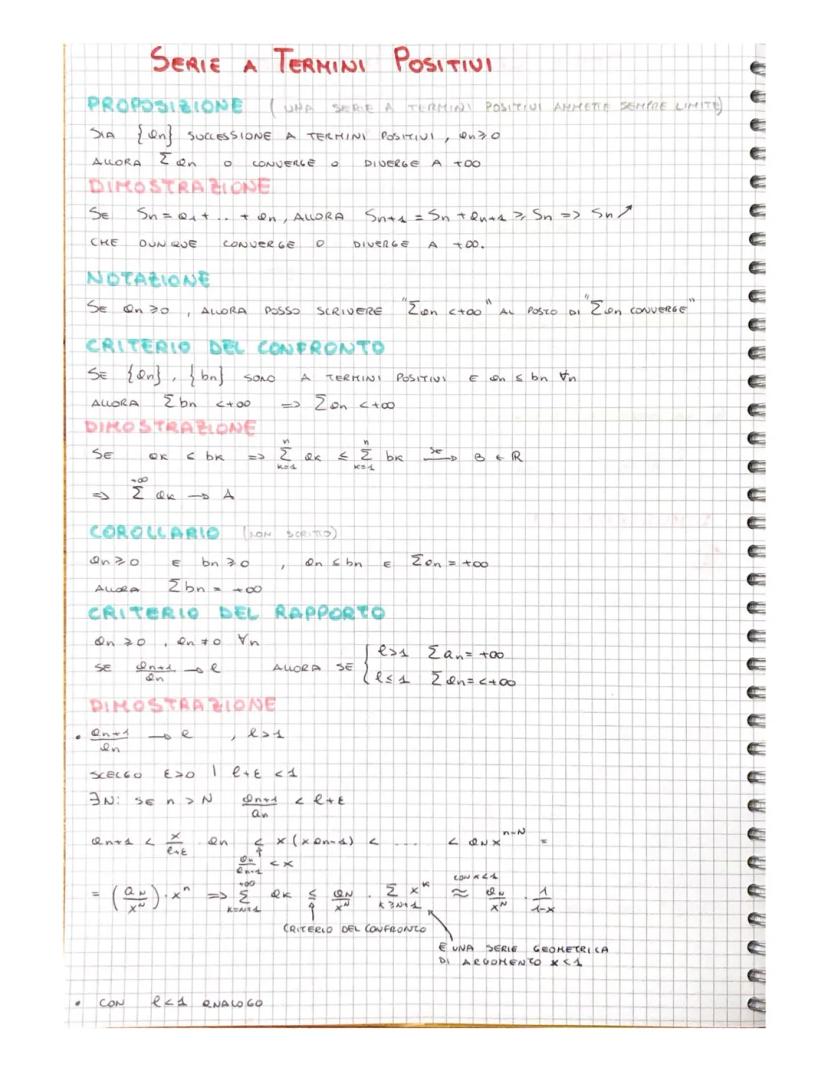 SERIE A TERMINI POSITIVI
PROPOSIZIONE (UNA SERIE A TERMINI POSITIVI AMMETTE SEMPRE LIMITE)
SIA {an} SUCCESSIONE A TERMINI POSITIVI, an ≥ 0
ALLORA Σ an O CONVERGE O DIVERGE A +∞
DIMOSTRAZIONE
SE Sn = a1 + .. + an, ALLORA Sn+1 = Sn + an+1 ≥ Sn => Sn ↗
CHE DUNQUE CONVERGE O DIVERGE A +∞.
NOTAZIONE
SE an ≥ 0, ALLORA POSSO SCRIVERE "Σan <+∞" AL POSTO DI "Σan CONVERGE"
CRITERIO DEL CONFRONTO
SE {an}, {bn} SONO A TERMINI POSITIVI E an ≤ bn ∀n
ALLORA Σbn <+∞ => Σan <+∞
DIMOSTRAZIONE
SE ak ≤ bk => Σ_{k=1}^{n} ak ≤ Σ_{k=1}^{n} bk —se→ B ∈ R
=> Σ^{+∞} ak → A
COROLLARIO (NON SCRITTO)
an ≥ 0 E bn ≥ 0, an ≤ bn E Σan = +∞
ALLORA Σbn = +∞
CRITERIO DEL RAPPORTO
an ≥ 0, an ≠ 0 ∀n
SE an+1/an → l ALLORA SE { l>1 Σan = +∞
l≤1 Σan = <+∞
DIMOSTRAZIONE
• an+1/an → l, l>1
SCELGO ε>0 | l+ε <1
∃N: SE n > N an+1/an < l+ε
an+1 < x · an < x(x an-1) < ... < aN x^{n-N} =
l+ε
an/an-1 < x
= (aN/x^N) · x^n => Σ_{k=N+1}^{+∞} ak ≤ aN/x^N · Σ_{k≥N+1} x^k ≈ aN/x^N · 1/1-x
CON x<1
CRITERIO DEL CONFRONTO
È UNA SERIE GEOMETRICA
DI ARGOMENTO x<1
• CON l<1 ANALOGO